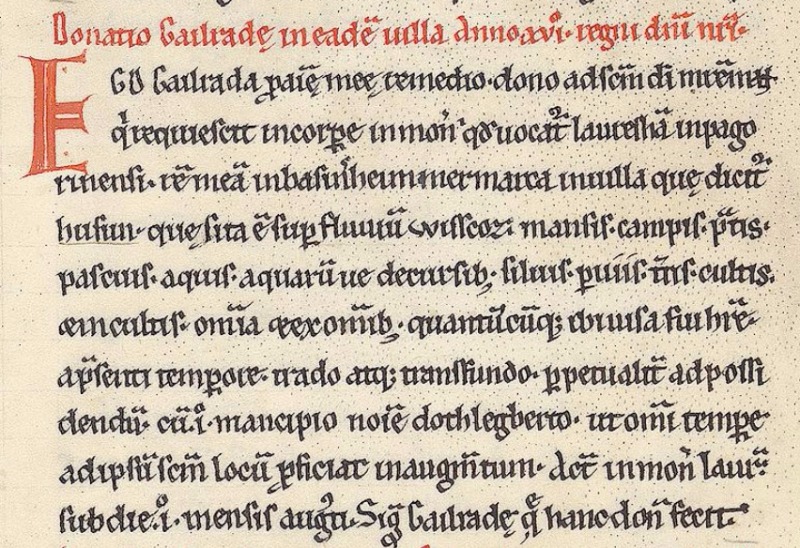 Donatio Gailradę in eadē uilla Anno xvi. regni dm̄i nr̄i.
EGO Gailrada ꝓ aīę meę remedio. dono ad scm̄ dī mr̄em
q̄i requiescit in corpꝑe in mon̄ qd̄ uocat̄ lauresħā in pago
rinensi. rē meā in basinsheim er marca in uilla quę dicit̄
husun. quę sita ē suꝑ fluuiū wisscoz. mansis. campis. p̄tis.
pascuis. aquis. aquarū ue decursib; siluis. ꝑuiis. tr̄is. cultis.
& incultis. omīa & ex omīb;. quantūcūq; ibi uisa fui hr̄e.
a p̄senti tempore. trado atq; transfundo. ꝑpetualit̄ ad possi
dendū. cū .i. mancipio noīe dothlegberto. ut om̄i tempꝑe
ad ipsū scm̄ locū ꝓficiat in augm̄tum. Act̄ in mon̄ laur̄.
sub die .i. mensis auḡti. Siḡ Gailradę q̄ę hanc don̄ fecit.